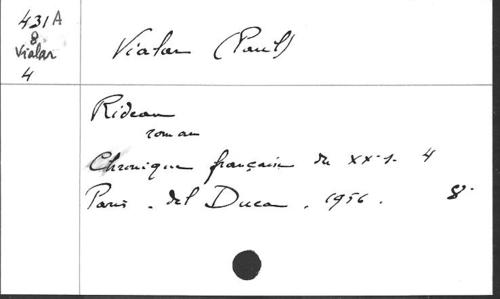 431A
8
Vialar
4
Vialar (Paul)
Rideau
roman
Chronique française du XXe s. 4
Paris. del Duca. 1956. 8°